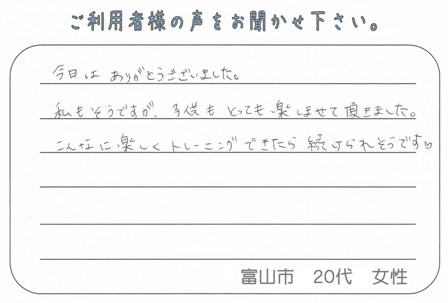 ご利用者様の声をお聞かせ下さい。
今日は ありがとうございました。
私もそうですが、子供も とっても 楽しませて頂きました。
こんなに楽しく トレーニング できたら 続けられそうです♡
富山市 20代 女性